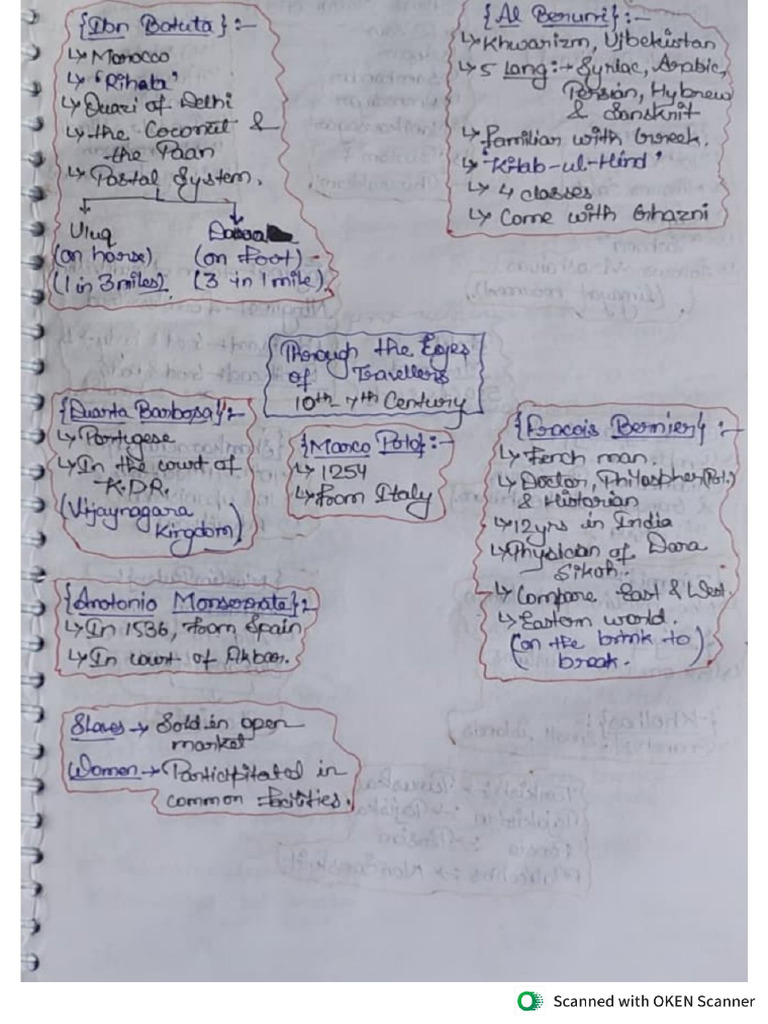 {Ibn Batuta} :-
↳ Morocco
↳ 'Rihata'
↳ Quazi of Delhi
↳ the Coconut &
the Paan
↳ Postal System.
Uluq
(on horse)
(1 in 3 miles).
(on foot) -
(3 in 1 mile).
{Al Beruni} :-
↳ Khwarizm, Ujbekistan
↳ 5 Lang :- Syriac, Arabic,
Persian, Hybrew
& Sanskrit
↳ familiar with Greek.
↳ 'Kitab-ul-Hind'
↳ 4 classes
↳ Come with Ghazni
Through the Eyes
of Travellers
10th - 7th Century
{Duarta Barbosa} :-
↳ Portugese
↳ In the court of
K.D.R.
(Vijaynagara
Kingdom)
{Marco Polo} :-
↳ 1254
↳ from Italy
{Fracois Bernier} :-
↳ Ferch man.
↳ Doctor, Philospher (Pol.)
& Historian
↳ 12yrs in India
↳ Physician of Dara
Sikoh.
↳ Compare East & West.
↳ Eastern world.
(on the brink to)
break.
{Anotonio Monserrate} :-
↳ In 1536, from Spain
↳ In court of Akbar.
Slaves → Sold in open
market
Women → Participitated in
common facilities.
Scanned with OKEN Scanner